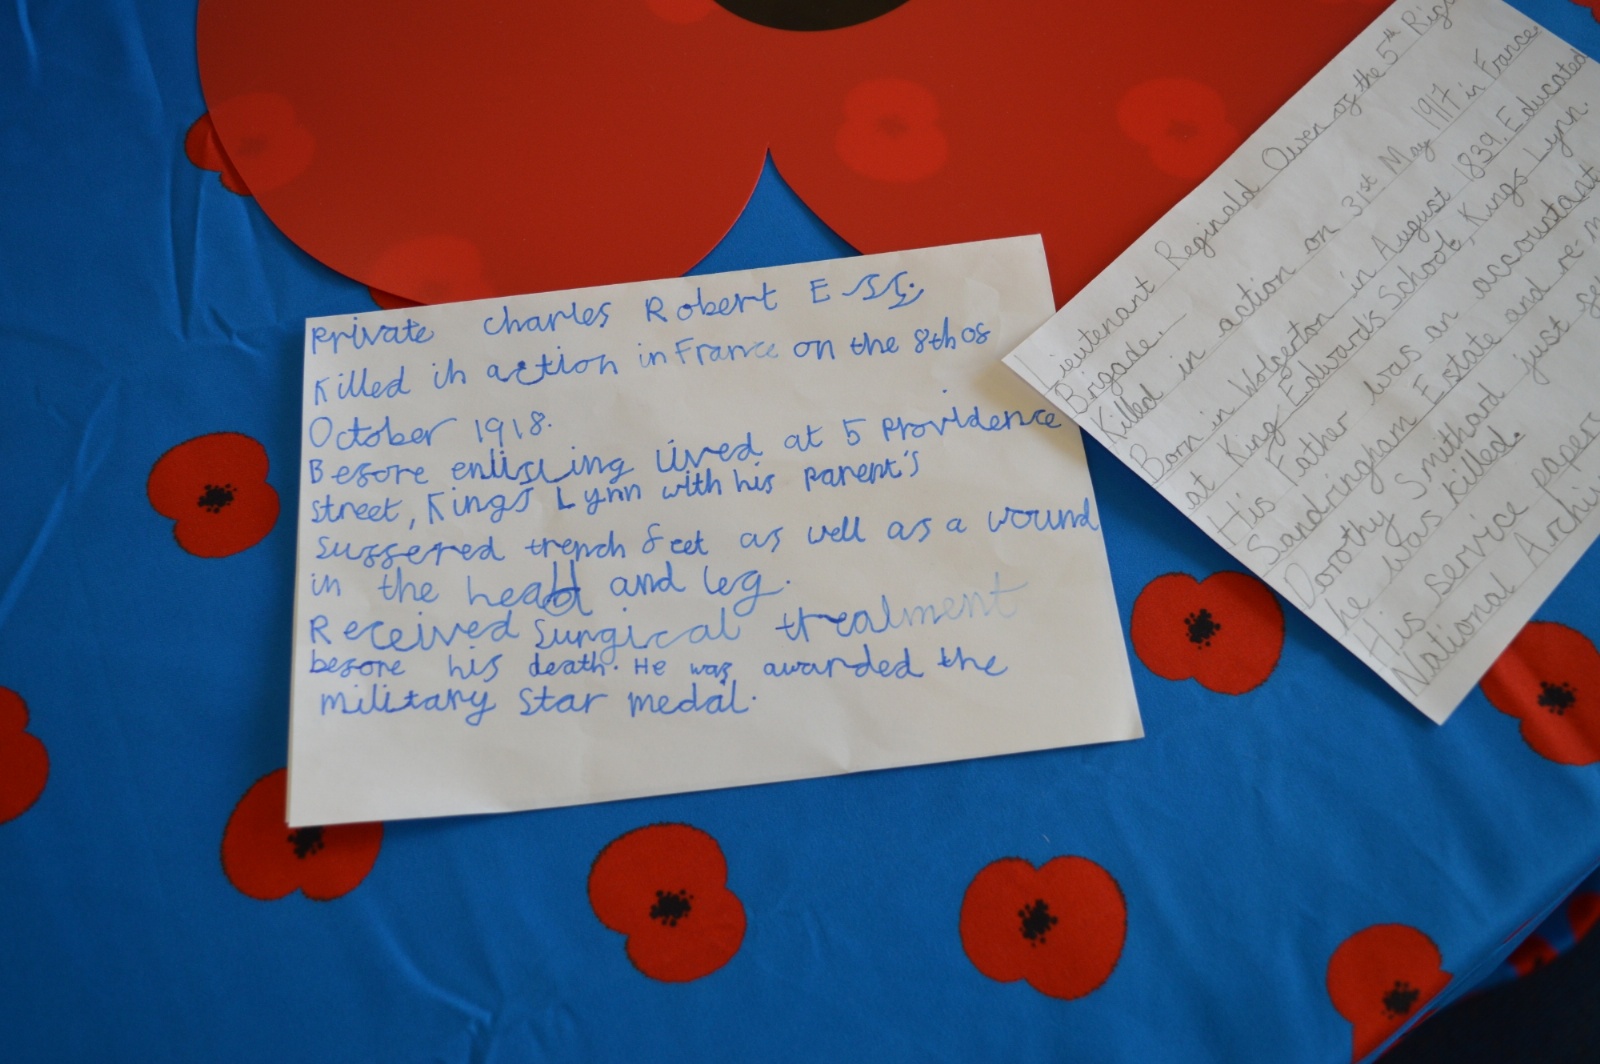 Private Charles Robert
Killed in action in France on the 8th of
October 1918.
Before enlisting lived at 5 Providence
street, Kings Lynn with his parent's
Suffered trench feet as well as a wound
in the head and leg.
Received surgical treatment
before his death. He was awarded the
military star medal.
Lieutenant Reginald Owen of the 5th
Brigade.
Killed in action on 31st May 1917 in France.
Born in Wolferton in August 1839. Educated
at King Edwards School, Kings Lynn.
His Father was an accountant
Sandringham Estate and
Dorothy Smithard just
he was killed.
His service papers
National